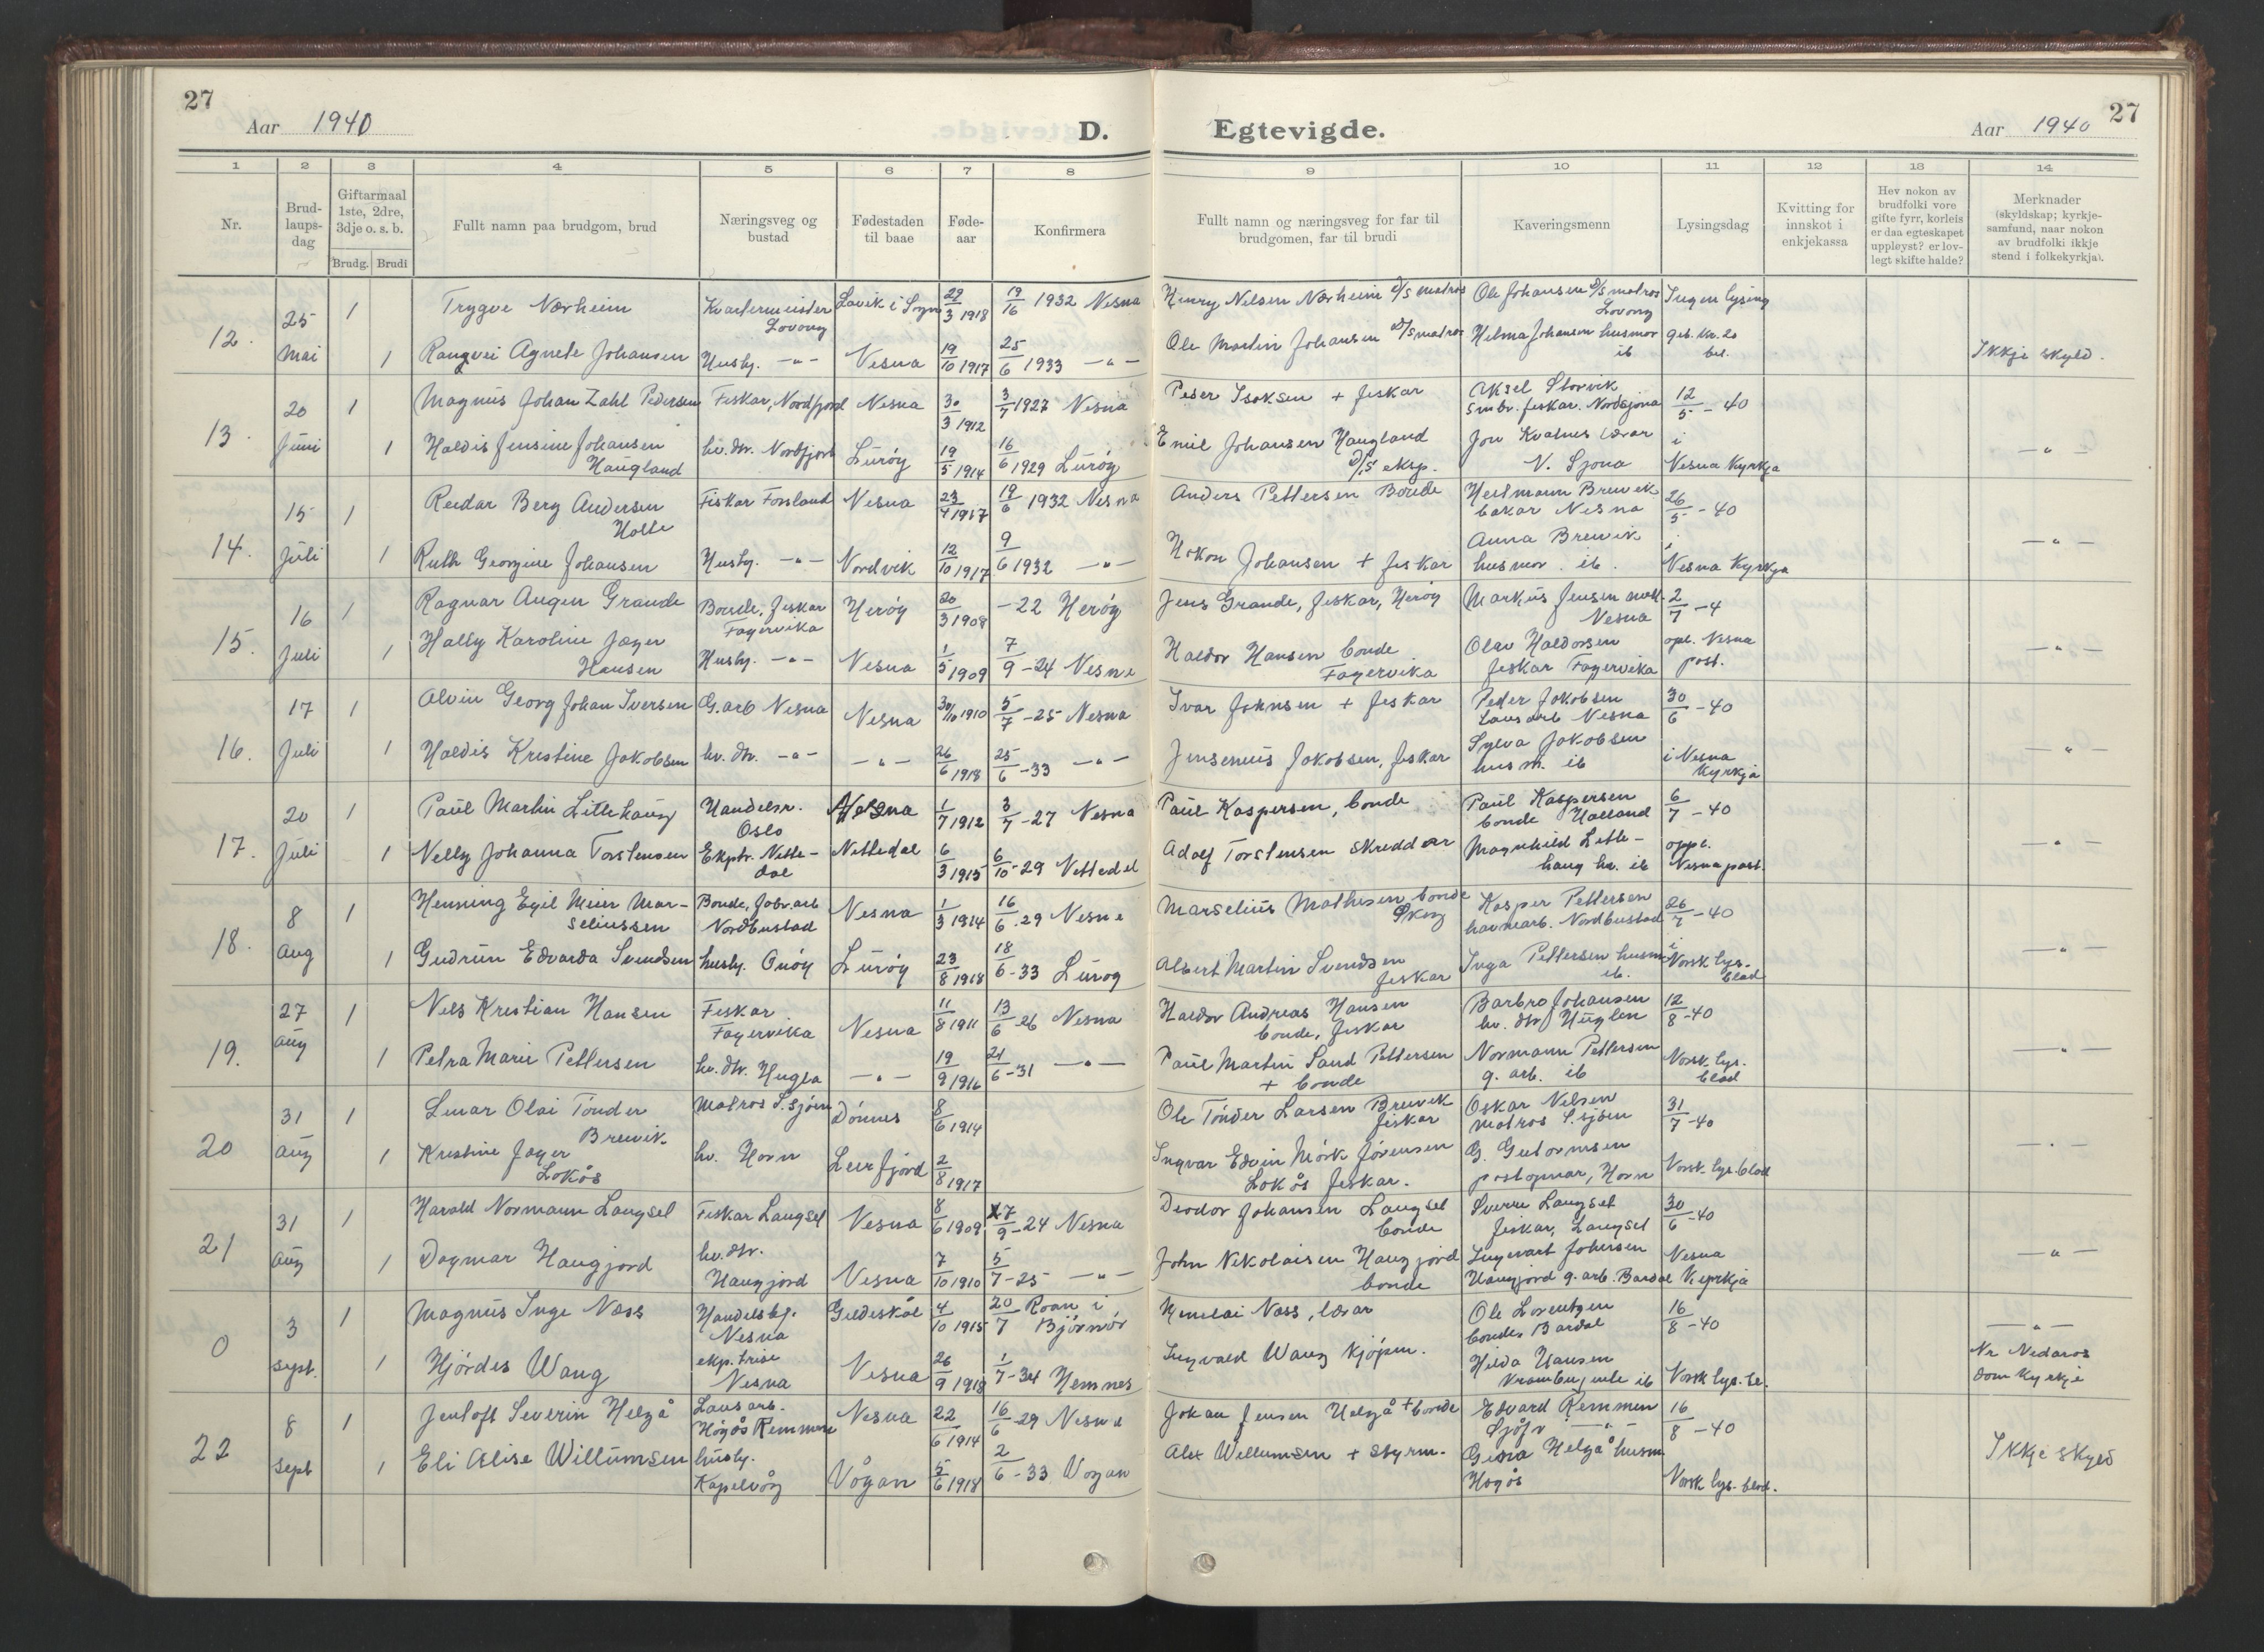 27
Aar 1940
D.
Egtevigde.
Aar 1940
27
1 2 3 4 5 6 7 8 9 10 11 12 13 14
Nr.
Brud-
laups-
dag
Giftarmaal
1ste, 2dre,
3dje o. s. b.
Brudg. Brudi
Fullt namn paa brudgom, brud
Næringsveg og
bustad
Fødestaden
til baae
Føde-
aar
Konfirmera
Fullt namn og næringsveg for far til
brudgomen, far til brudi
Kaveringsmenn
Lysingsdag
Kvitting for
innskot i
enkjekassa
Hev nokon av
brudfolki vore
gifte fyrr, korleis
er daa egteskapet
uppløyst? er lov-
legt skifte halde?
Merknader
(skyldskap; kyrkje-
samfund, naar nokon
av brudfolki ikkje
stend i folkekyrkja).
12. 25 Mai
1 Trygve Nærheim Kvartermeister Lovong Lavik i Sogn 29/3 1918 19/16 1932 Nesna Henry Nelsen Nærheim d/s matros Ole Johansen d/s matros Lovong Ingen lysing
1 Rangvei Agnete Johansen Husby. -"- Nesna 19/10 1917 25/6 1933 -"- Ole Martin Johansen d/s matros Helma Johansen husmor ib Ikkje skyld.
13. 20 Juni
1 Magnus Johan Zahl Pedersen Fiskar, Nordfjord Nesna 30/3 1912 3/7 1927 Nesna Peder Isaksen + fiskar Aksel Storvik smbr. fiskar. Nordsjona 12/5 - 40
1 Haldis Jensine Johansen Haugland hv. dtr. Nordfjord Lurøy 19/5 1914 16/6 1929 Lurøy Emil Johansen Haugland d/s eksp. Jon Kvalnes lærar N. Sjona i Nesna Kyrkja -"-
14. 15 Juli
1 Reidar Berg Andersen Holte Fiskar Forsland Nesna 23/4 1917 19/6 1932 Nesna Anders Pettersen Bonde Hertmann Brewik bakar Nesna 26/5 - 40
1 Ruth Georgine Johansen Husby. -"- Nordvik 12/10 1917 9/6 1932 -"- Hokon Johansen + fiskar Anna Brewik husmor. ib. i Nesna Kyrkja -"-
15. 16 Juli
1 Ragnar Angen Grande Bonde, fiskar Fagervika Herøy 20/3 1908 -22 Herøy Jens Grande, fiskar, Herøy Markus Jensen Nesna 2/7 - 4
1 Hally Karoline Jæger Hansen Husby. -"- Nesna 1/5 1909 7/9 - 24 Nesna Haldor Hansen bonde Fagervika Olav Haldorsen fiskar Fagervika opl. Nesna post. -"-
16. 17 Juli
1 Alvin Georg Johan Iversen G.arb Nesna Nesna 30/10 1910 5/7 - 25 Nesna Ivar Johnsen + fiskar Peder Jakobsen Lausarb Nesna 30/6 - 40
1 Haldis Kristine Jakobsen hv. dtr. -"- -"- 26/6 1918 25/6 - 33 -"- Jensenius Jakobsen, fiskar Sylva Jakobsen husm. ib i Nesna Kyrkja -"-
17. 20 Juli
1 Paul Martin Littlehaug Handelsr. Oslo Nesna 1/7 1912 3/7 - 27 Nesna Paul Kaspersen, bonde Paul Kaspersen bonde Halland 6/7 - 40
1 Nelly Johanna Torstensen Ekptr. Nette- dal Nettedal 6/3 1915 6/10 - 29 Nettedal Adolf Torstensen skreddar Magnhild Litle- haug hv. ib oppl. Nesna post. -"-
18. 8 Aug
1 Henning Egil Meier Mar- seliussen Bonde, Jobr.arb Nordbustad Nesna 1/3 1914 16/6. 29 Nesna Marselius Mathisen bonde Skog Kasper Pettersen havnearb. Nordbustad 26/7 - 40
1 Gudrun Edvarda Svendsen husby. Onøy Lurøy 23/8 1918 18/6 - 33 Lurøy Albert Martin Svendsen fiskar Inga Pettersen husm ib. i Norsk lys.- blad -"-
19. 27 Aug
1 Nels Kristian Hansen Fiskar Fagervika Nesna 11/8 1911 13/6 - 26 Nesna Haldor Andreas Hansen bonde, fiskar Barbro Johansen hv. dtr Huglen 12/8 - 40
1 Petra Marie Pettersen hv. dtr. Hugla -"- 19/9 1916 21/6 - 31 -"- Paul Martin Sand Pettersen + bonde Normann Pettersen g. arb. ib Norsk lys. blad -"-
20 31 Aug
1 Lenar Olai Tønder Brewik Matros S.sjøen Dønnes 8/6 1914 Ole Tønder Larsen Brewik fiskar Oskar Nelsen Matros S.sjøen 31/7 - 40
1 Kristine Jæger Lokås hv. Horn Leirfjord 2/8 1917 Ingvar Edvin Mørk Jørensen Lokås fiskar. G. Gutormsen postopnar, Horn Norsk lys. blad -"-
21 31 Aug
1 Harald Normann Langsel Fiskar Langsel Nesna 8/6 1909 7/9 - 24 Nesna Deodor Johansen Langsel bonde Sverre Langset fiskar, Langsel 30/6 - 40
1 Dagmar Haugjord hv. dtr. Haugjord Nesna 7/10 1910 5/7 - 25 -"- John Nikolaisen Haugjord bonde Ingevart Johnsen Haugjord g. arb. Bardal Nesna Kyrkja -"-
0 3 Sept.
1 Magnus Inge Næss Handelsbf. Nesna Gildeskål 4/10 1915 20/7 Roan i Bjørnør Næss, lærar Ole Lorentzen bonde, Bardal 16/8 - 40 -"-
1 Hjørdis Wang ekp.trise Nesna Nesna 26/9 1918 1/7 - 34 Hemnes Ingvald Wang kjøpm. Hilda Hansen ib Norsk lys. bl. Nr Nidaros Dom Kyrkje
22 8 Sept
1 Jentoft Severin Helgå Lausarb. Høgås Remmen Nesna 22/6 1914 16/6 - 29 Nesna Johan Jensen Helgå + bonde Edvard Remmen Sjåfør -"- 16/8 - 40
1 Eli Alise Willumsen husby. Kapelvåg Vågan 5/6 1918 2/6 - 33 Vågan Alex Willumsen + styrm. Helgå husm Høgås Norsk lys. blad. Ikkje skyld